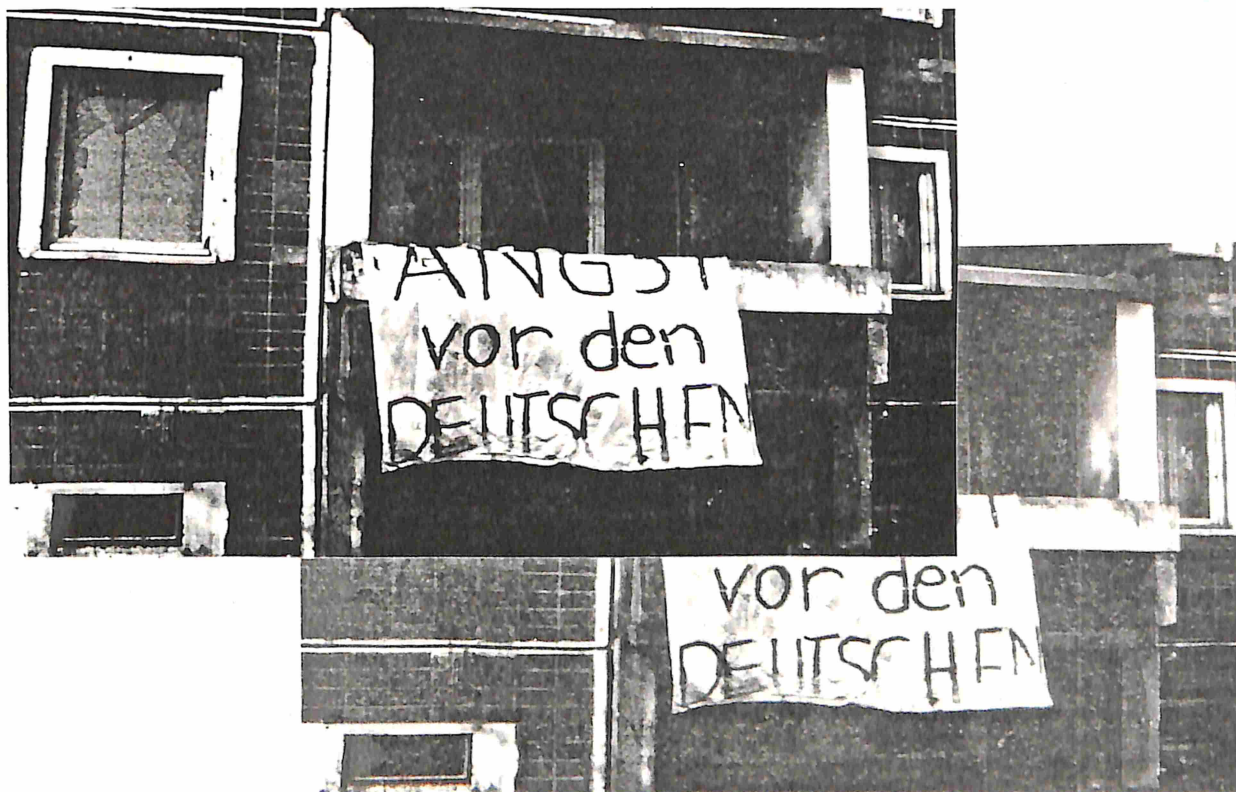 ANGST
vor den
DEUTSCHEN
vor den
DEUTSCHEN